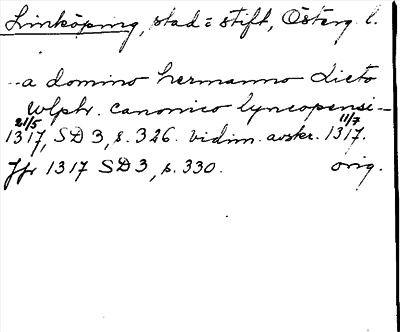 Linköping, stad = stift, Österg. l.
--a domino hermanno Dicto
Wlphr. canonico lyncopensi-
21/5 11/7
1317, SD 3, s. 326. vidim. avskr. 1317.
Jfr 1317 SD 3, s. 330. orig.